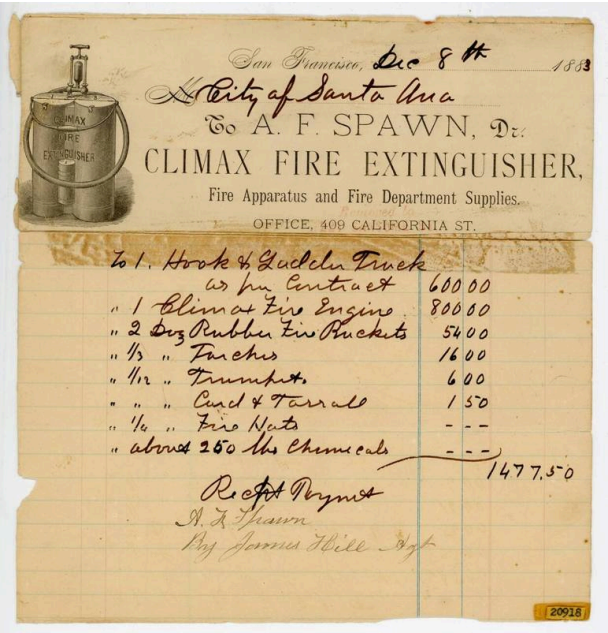 San Francisco, Dec 8th 1883
M City of Santa Ana
To A. F. SPAWN, Dr.
CLIMAX FIRE EXTINGUISHER,
Fire Apparatus and Fire Department Supplies.
OFFICE, 409 CALIFORNIA ST.
CLIMAX
FIRE
EXTINGUISHER
To 1. Hook & Ladder Truck
as per Contract 600 00
" 1 Climax Fire Engine 800 00
" 2 Doz Rubber Fire Buckets 54 00
" 1/3 " Torches 16 00
" 1/12 " Trumpets 6 00
" " " Cord & Tassall 1 50
" 1/4 " Fire Hats - - -
" about 250 lbs Chemicals - - -
1477.50
Recpt Paymet
A. F. Spawn
By James Hill Agt
20918